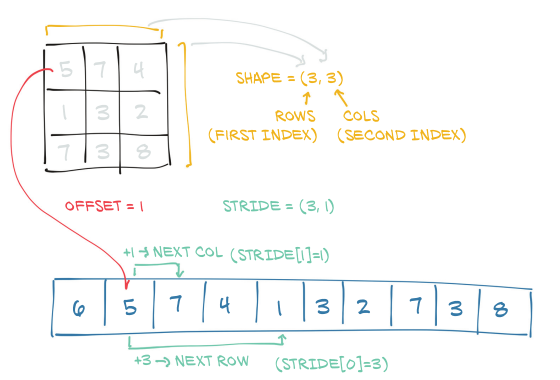 5 7 4
1 3 2
7 3 8
SHAPE = (3, 3)
ROWS
(FIRST INDEX)
COLS
(SECOND INDEX)
OFFSET = 1
STRIDE = (3, 1)
+1 → NEXT COL (STRIDE[1]=1)
6 5 7 4 1 3 2 7 3 8
+3 → NEXT ROW (STRIDE[0]=3)